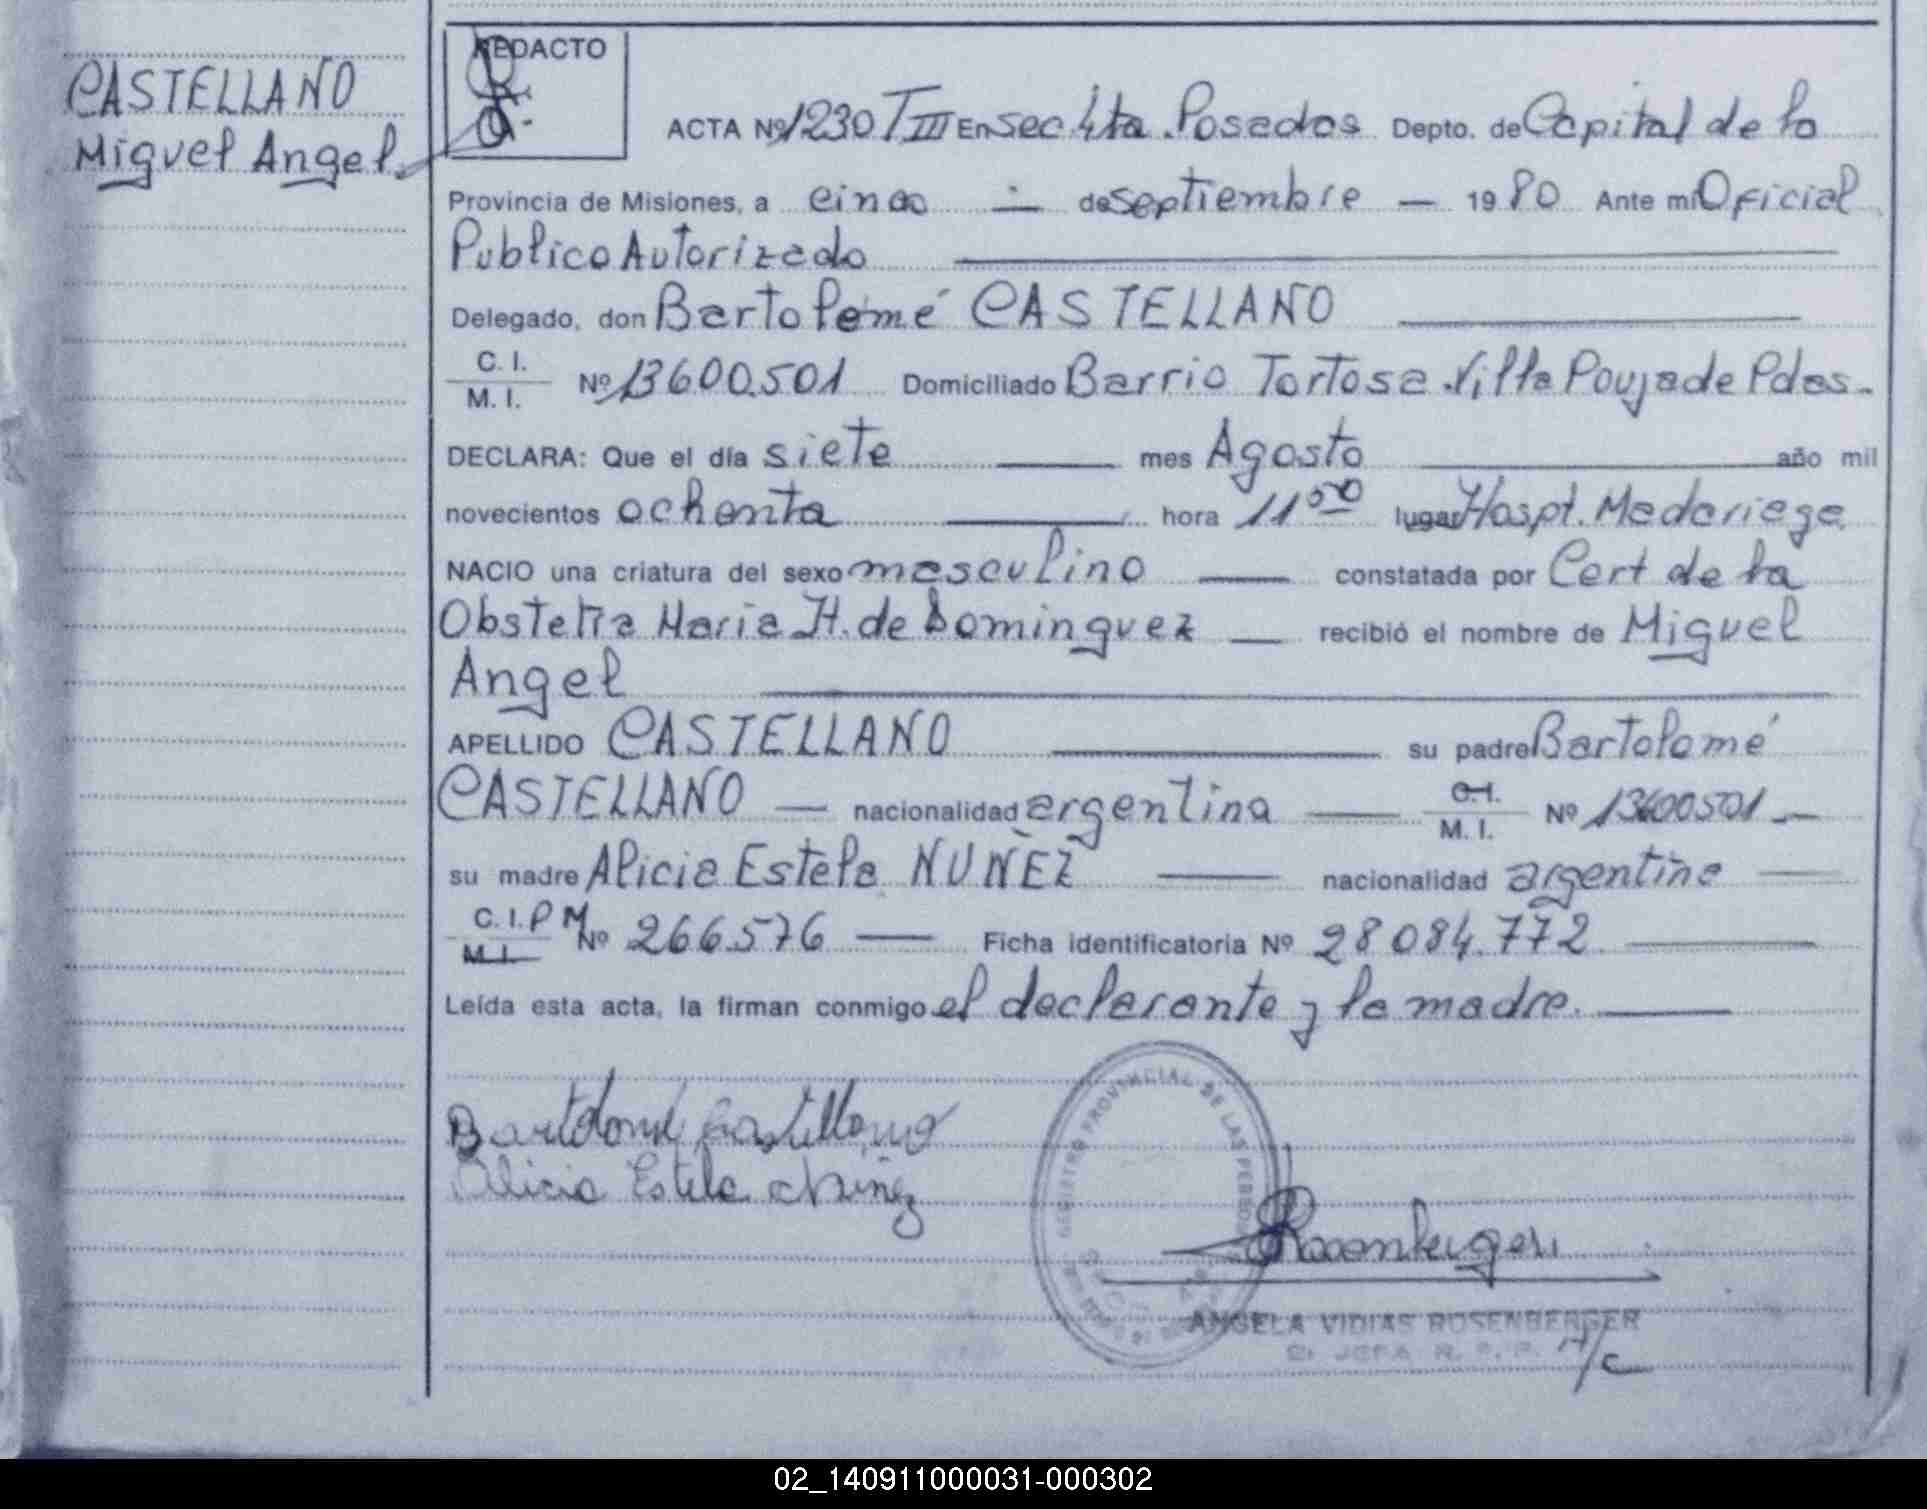 CASTELLANO
Miguel Angel
REDACTO
ACTA Nº 1230 T III En Sec 4ta. Posadas Depto. de Capital de la
Provincia de Misiones, a cinco — de septiembre — 1980 Ante mi Oficial
Publico Autorizado
Delegado, don Bartolomé CASTELLANO
C. I.
M. I. Nº 13600.501 Domiciliado Barrio Tortosa Villa Poujade Pdas.
DECLARA: Que el día siete — mes Agosto — año mil
novecientos ochenta — hora 11 50 lugar Hospt. Madariaga
NACIO una criatura del sexo masculino — constatada por Cert de la
Obstetra Maria H. de Dominguez — recibió el nombre de Miguel
Angel
APELLIDO CASTELLANO — su padre Bartolomé
CASTELLANO — nacionalidad argentina — C. I. M. I. Nº 13600501 —
su madre Alicia Estela NUÑEZ — nacionalidad argentina —
C. I. P M M. I. Nº 266.576 — Ficha identificatoria Nº 28 084.772
Leída esta acta, la firman conmigo el declarante y la madre.
Bartolomé Castellano
Alicia Estela Nuñez
REGISTRO PROVINCIAL DE LAS PERSONAS
Rosenberger
ANGELA VIDIAS ROSENBERGER
JEFA R. P. P. A/C
02_140911000031-000302